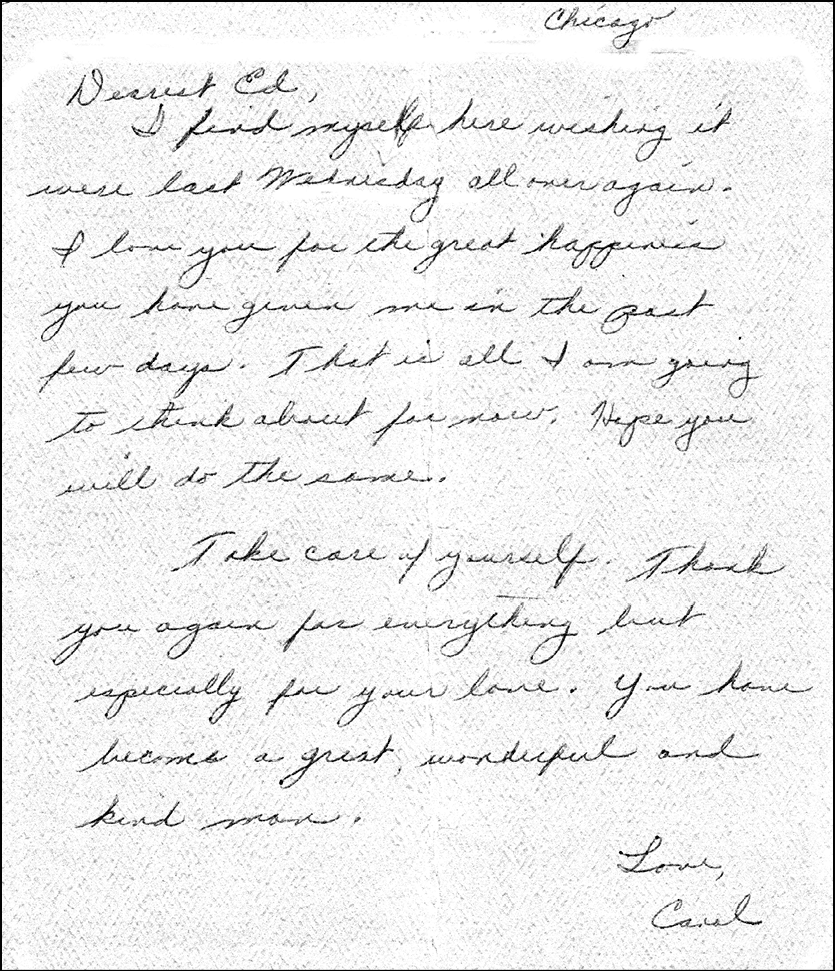 Chicago
Dearest Ed,
I find myself here wishing it
were last Wednesday all over again.
I love you for the great happiness
you have given me in the past
few days. That is all I am going
to think about for now. Hope you
will do the same.
Take care of yourself. Thank
you again for everything but
especially for your love. You have
become a great, wonderful and
kind man.
Love,
Carol